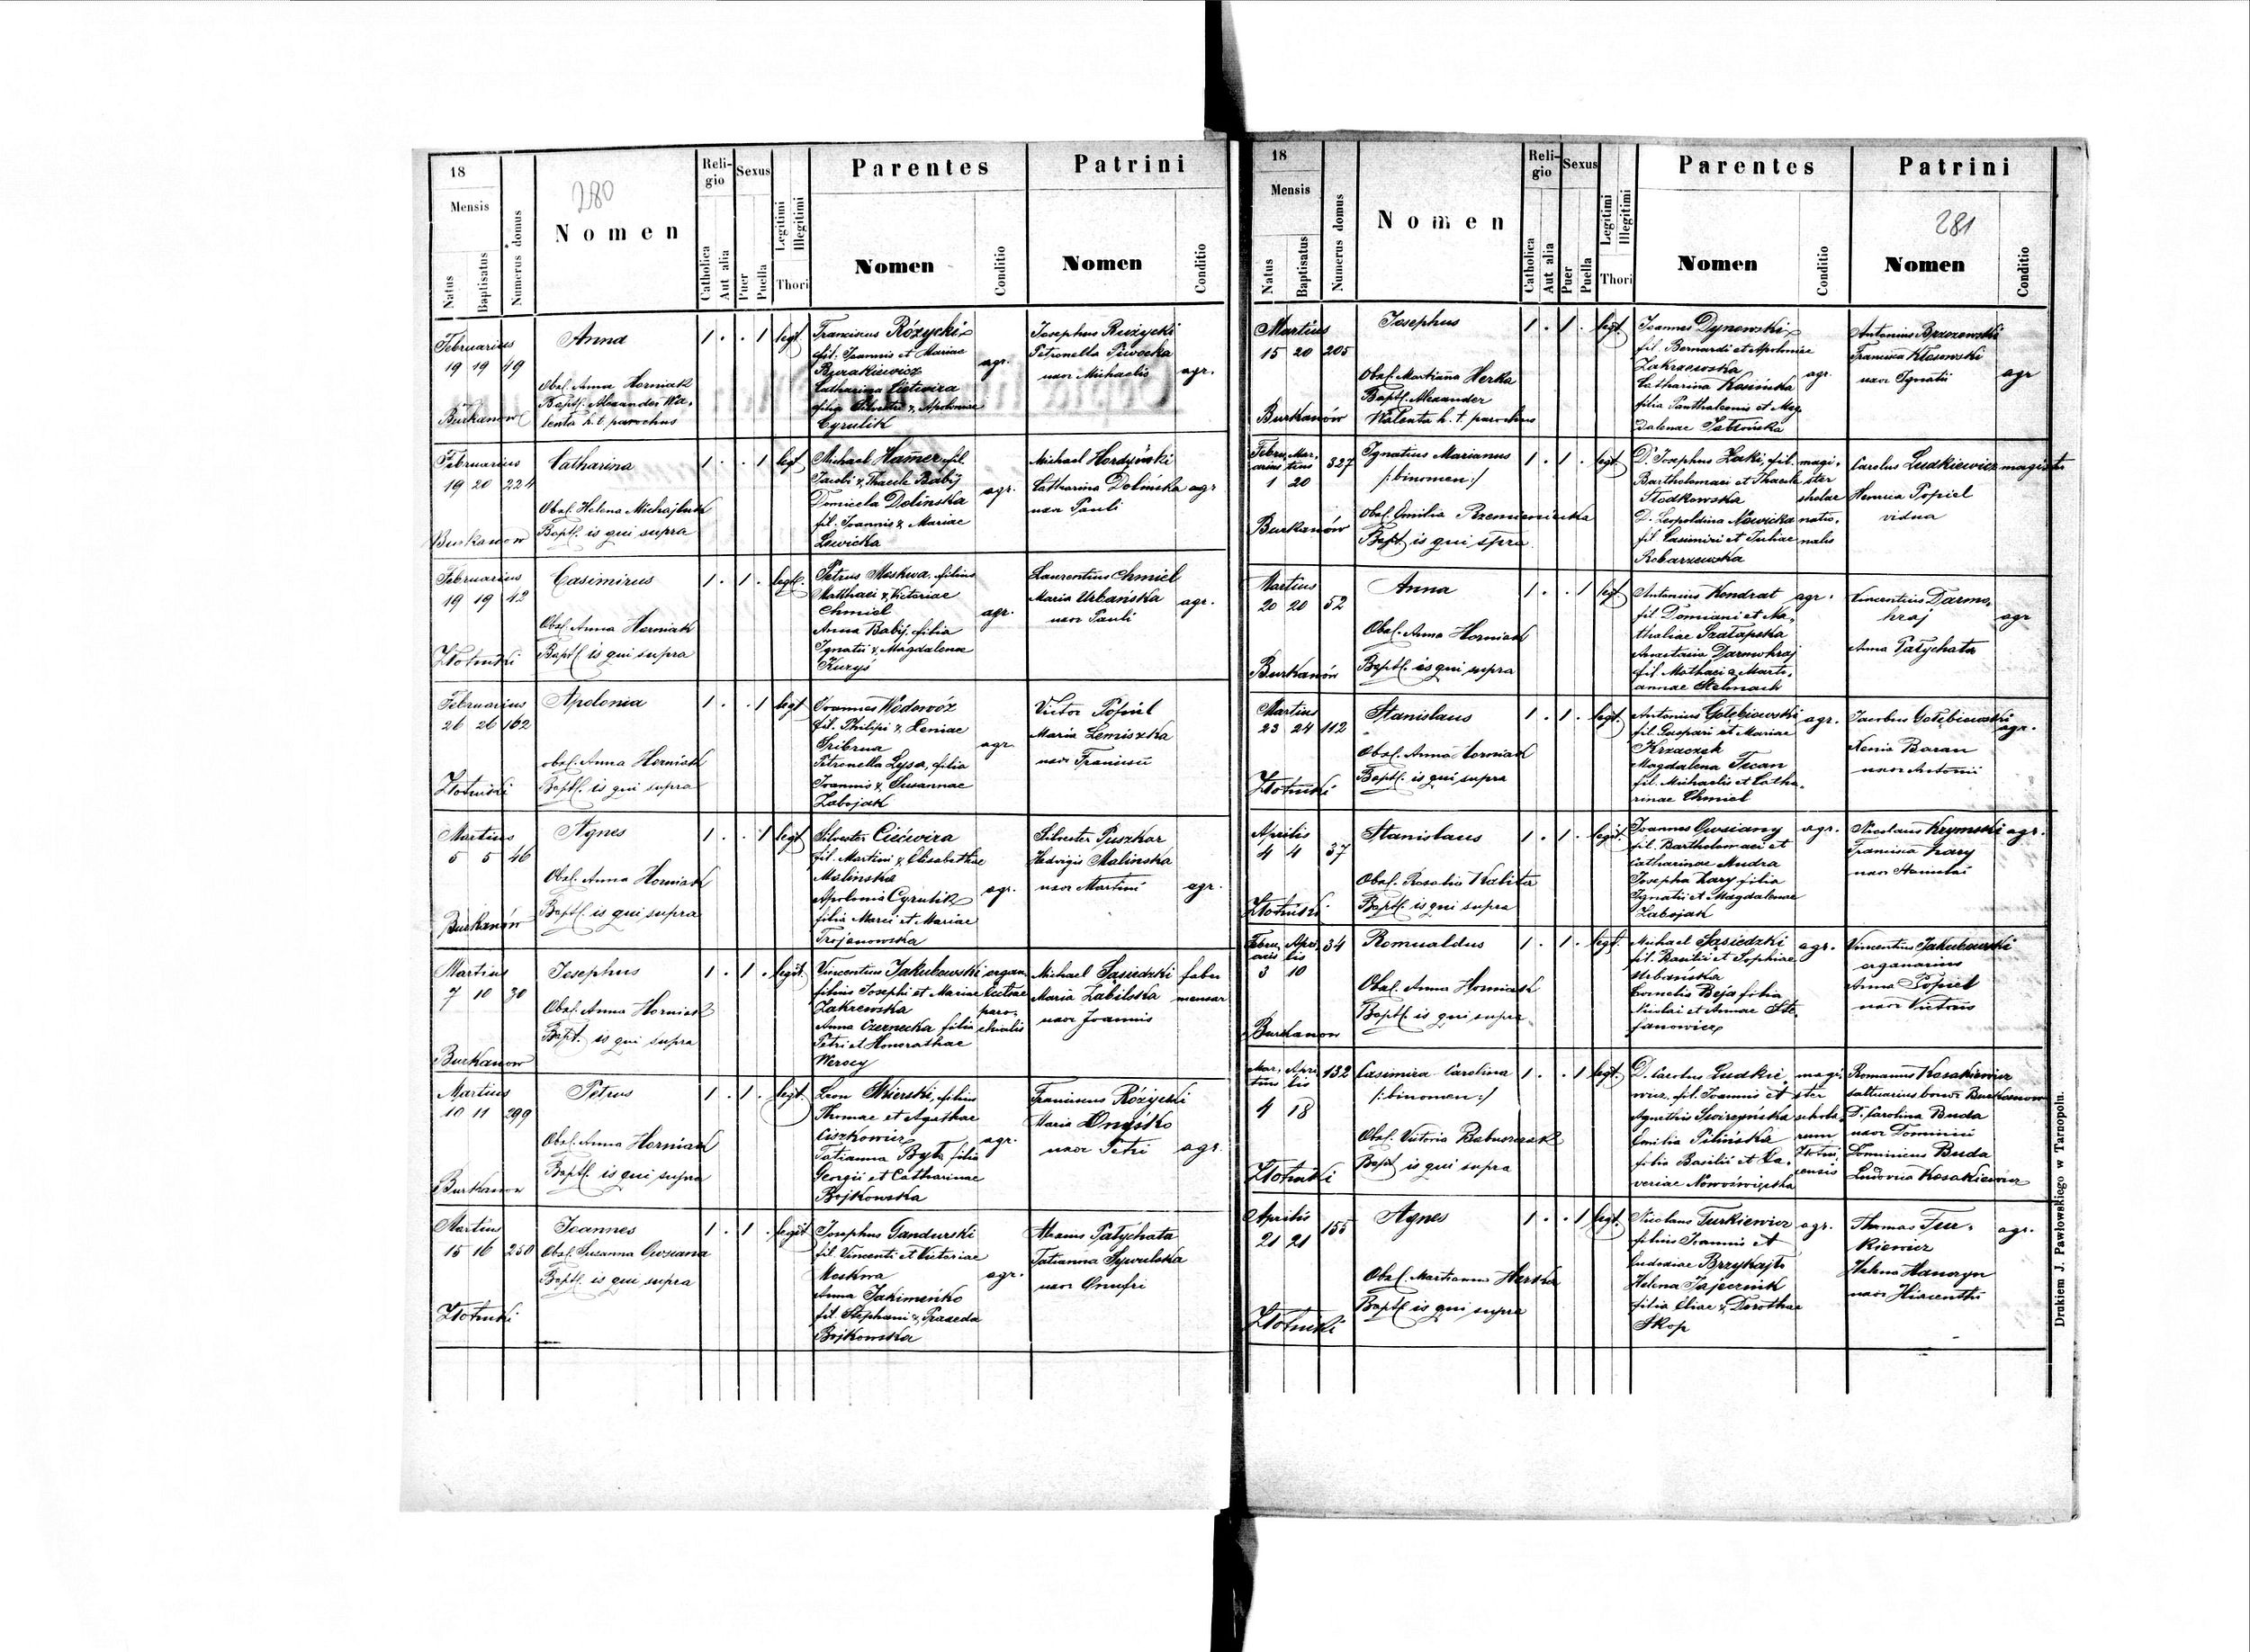 18
Mensis
Natus
Baptisatus
Numerus domus
280
Nomen
Religio
Catholica
Aut alia
Sexus
Puer
Puella
Legitimi
Illegitimi
Thori
Parentes
Nomen
Conditio
Patrini
Nomen
Conditio
Februarius
19 19 49
Burkanow
Anna
Obst. Anna Horniak
Bapt. Alexander Wa-
lenta h. t. parochus
1 . . 1 legt.
Franciscus Różycki
fil. Joannis et Mariae
Burakiewicz
Catharina
filia Silvestri &, Apoloniae
Cyrulik
agr.
Josephus Ruzycki
Petronella Piwocka
uxor Michaelis
agr.
Februarius
19 20 224
Burkanow
Catharina
Obst. Helena Michajluk
Bapt. is qui supra
1 . . 1 legt
Michael Hamer fil.
Jacobi &, Theclae Babij
Domicela Dolinska
fil. Joannis & Mariae
Lewicka
agr.
Michael Hordyński
Catharina Dolińska
uxor Pauli
agr
Februarius
19 19 42
Złotniki
Casimirus
Obst. Anna Horniak
Bapt. is qui supra
1 . 1 . legt.
Petrus Moskwa, filius
Matthaei &, Victoriae
Chmiel
Anna Babij, filia
Ignatii &, Magdalenae
Kuryś
agr.
Laurentius Chmiel
Maria Urbańska
uxor Pauli
agr.
Februarius
26 26 162
Złotniki
Apolonia
obst. Anna Horniak
Bapt. is qui supra
1 . . 1 legt
Joannes Wodowóz
fil. Philipi & Xeniae
Sribrna
Petronella Lysa, filia
Joannis &, Susannae
Zabojak
agr.
Victor Popiel
Maria Lemiszka
uxor Francisci
Martius
5 5 46
Burkanów
Agnes
Obst. Anna Horniak
Bapt. is qui supra
1 . . 1 legt
Silvester Cićwira
fil. Martini & Elisabethae
Malinska
Apolonia Cyrulik
filia Marci et Mariae
Trojanowska
agr.
Silvester Puszkar
Hedvigis Malinska
uxor Martini
agr.
Martius
7 10 30
Burkanow
Josephus
Obst. Anna Horniak
Bapt. is qui supra
1 . 1 . legit
Vincentius Jakubowski
filius Josephi et Mariae
Zakrewska
Anna Czernecka filia
Petri et Honorathae
Werocy
organ.
Eccl­siae
paro-
chialis
Michael Sąsiedzki
Maria Zabilska
uxor Joannis
faber
Martius
10 11 299
Burkanow
Petrus
Obst. Anna Horniak
Bapt. is qui supra
1 . 1 . legt.
Leon Skierski, filius
Thomae et Agathae
Ciszkowicz
Tatianna Byk filia
Georgii et Catharinae
Bojkowska
agr.
Franciscus Różycki
Maria Onyśko
uxor Petri
agr.
Martius
15 16 250
Złotniki
Joannes
Obst. Susanna Owsiana
Bapt. is qui supra
1 . 1 . legit
Josephus Gandurski
fil. Vincenti et Victoriae
Moskwa
Anna Jakimeńko
fil. Stephani &, Praxeda
Bojkowska
agr.
Pałychata
Tatianna Sywulska
uxor Onufri
18
Mensis
Natus
Baptisatus
Numerus domus
Nomen
Religio
Catholica
Aut alia
Sexus
Puer
Puella
Legitimi
Illegitimi
Thori
Parentes
Nomen
Conditio
Patrini
281
Nomen
Conditio
Martius
15 20 205
Burkanów
Josephus
Obst. Martianna Herka
Bapt. Alexander
Walenta h. t. parochus
1 . 1 . legt
Joannes Dynowski
fil. Bernardi et Apoloniae
Zakrzewska
Catharina Kosińska
filia Panthaleonis et Mag-
dalenae
agr.
Antonius Brzozowski
Francisca Kłosowski
uxor Ignatii
agr
Februarius Martius
1 20
327
Burkanów
Ignatius Marianus
/:binomen:/
Obst. Emilia
Bapt. is qui spra
1 . 1 . legt
D. Josephus Żaki, fil.
Bartholomaei et Theclae
Słodkowska
D. Leopoldina Nowicka
fil. Casimiri et Juliae
Robarzewska
magi-
ster
scholae
natio-
nalis
Carolus Ludkiewicz magister
Henrica Popiel
vidua
Martius
20 20 52
Burkanów
Anna
Obst. Anna Horniak
Bapt. is qui supra
1 . . 1 legt
Antonius Kondrat
fil. Domiani et Na-
thaliae Szałapska
Anastasia Darmohraj
fil. Mathaei & Marti-
annae Stelmach
agr.
Vincentius Darmo-
hraj
Anna Pałychata
agr
Martius
23 24 112
Złotniki
Stanislaus
Obst. Anna Horniak
Bapt. is qui supra
1 . 1 . legt.
Antonius Gołębiowski
fil. Gaspari et Mariae
Krzaczek
Magdalena Tucan
fil. Michaelis et Catha-
rinae Chmiel
agr.
Jacobus Gołębiowski
Xenia Baran
uxor Antonii
agr.
Aprilis
4 4 37
Złotniki
Stanislaus
Obst. Rosalia Kalita
Bapt. is qui supra
1 . 1 . legit.
Joannes Owsiany
fil. Bartholomaei et
Catharinae Mudra
Josepha Lary filia
Ignatii et Magdalenae
Zabojak
agr.
Nicolaus Krymski
Francisca Lary
uxor Stanislai
agr.
Febru- Apri-
arii lis
3 10
34
Burkanow
Romualdus
Obst. Anna Horniak
Bapt. is qui supra
1 . 1 . legt.
Michael Sąsiedzki
fil. Basilii et Sophiae
Urbańska
Cornelia Beja filia
Nicolai et Annae Ste-
fanowicz
agr.
Vincentius Jakubowski
organarius
Anna Popiel
uxor Victoris
Mar- Apri-
tius lis
4 18
132
Złotniki
Casimira Carolina
/:binomen:/
Obst. Victoria Babuszczak
Bapt is qui supra
1 . . 1 legt.
D. Carolus Ludkie-
wicz, fil. Joannis et
Agnethis Swirzyńska
Emilia Pilińska
filia Basilii et Xa-
veriae Nowoświęcka
magi-
ster
schola-
rum
Romanus Kosakiewicz
saltuarius bonor. Burkanow
D. Carolina Buda
uxor Dominici
Dominicus Buda
Ludovica Kosakiewicz
Aprilis
21 21
155
Złotniki
Agnes
Obst. Martianna Herska
Bapt is qui supra
1 . . 1 legt.
Nicolaus Turkiewicz
filius Joannis et
Eudoxiae Brzykajło
Helena Jajecznik
filia Eliae &, Dorothae
Skop
agr.
Thomas Tur-
kiewicz
Helena Hawryn
uxor Hiacenthi
agr.
Drukiem J. Pawłowskiego w Tarnopolu.